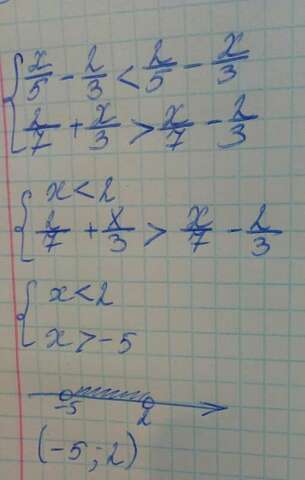 { x/5 - 2/3 < 2/5 - x/3
2/7 + x/3 > x/7 - 2/3
{ x < 2
2/7 + x/3 > x/7 - 2/3
{ x < 2
x > -5
-5 2
(-5 ; 2)